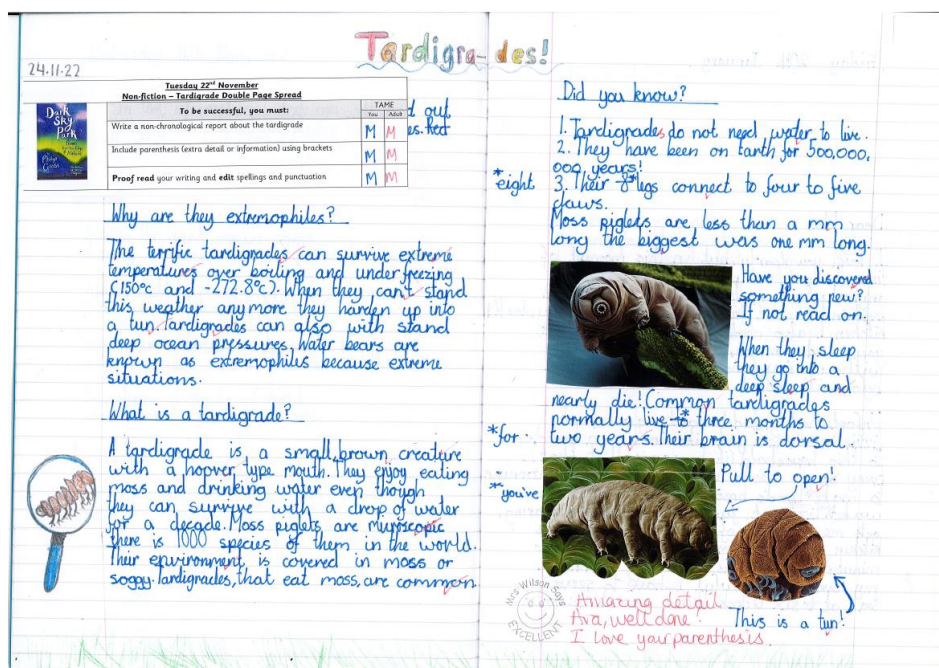 Tardigra-des!
24.11.22
Tuesday 22nd November
Non-fiction – Tardigrade Double Page Spread
To be successful, you must:
TAME
You Adult
Write a non-chronological report about the tardigrade
M M
Include parenthesis (extra detail or information) using brackets
M M
Proof read your writing and edit spellings and punctuation
M M
Dark
Sky
Park
out
es. Red
Why are they extremophiles?
The terrific tardigrades can survive extreme
temperatures over boiling and under freezing
(150°c and -272.8°c). When they can't stand
this weather anymore they harden up into
a tun. Tardigrades can also with stand
deep ocean pressures. Water bears are
known as extremophilus because extreme
situations.
What is a tardigrade?
A tardigrade is a small, brown creature
with a hoover type mouth. They enjoy eating
moss and drinking water even though
they can survive with a drop of water
for a decade. Moss piglets are microscopic
there is 1000 species of them in the world.
Their environment is covered in moss or
soggy. Tardigrades, that eat moss, are common
Did you know?
1. Tardigrades do not need water to live.
2. They have been on Earth for 500,000,
000, years!
*eight
3. Their 8* legs connect to four to five
claws.
Moss piglets are less than a mm
long the biggest was one mm long.
Have you discovered
something new?
If not read on.
When they sleep
they go into a
deep sleep and
nearly die! Common tardigrades
normally live to* three months to
*for
two years. Their brain is dorsal.
*you've
Pull to open!
This is a tun!
Mrs Wilson Says
EXCELLENT
Amazing detail
Ava, well done.
I love your parenthesis.